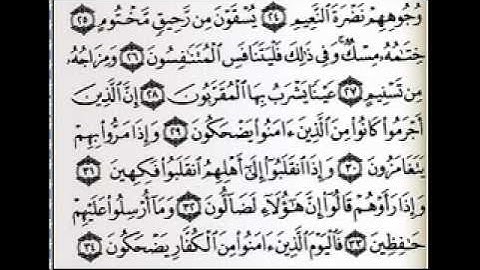 وُجُوهِهِمْ نَضْرَةَ ٱلنَّعِيمِ ٢٤ يُسْقَوْنَ مِن رَّحِيقٍ مَّخْتُومٍ ٢٥
خِتَٰمُهُۥ مِسْكٌ ۚ وَفِى ذَٰلِكَ فَلْيَتَنَافَسِ ٱلْمُتَنَٰفِسُونَ ٢٦ وَمِزَاجُهُۥ
مِن تَسْنِيمٍ ٢٧ عَيْنًا يَشْرَبُ بِهَا ٱلْمُقَرَّبُونَ ٢٨ إِنَّ ٱلَّذِينَ
أَجْرَمُوا۟ كَانُوا۟ مِنَ ٱلَّذِينَ ءَامَنُوا۟ يَضْحَكُونَ ٢٩ وَإِذَا مَرُّوا۟ بِهِمْ
يَتَغَامَزُونَ ٣٠ وَإِذَا ٱنقَلَبُوٓا۟ إِلَىٰٓ أَهْلِهِمُ ٱنقَلَبُوا۟ فَكِهِينَ ٣١
وَإِذَا رَأَوْهُمْ قَالُوٓا۟ إِنَّ هَٰٓؤُلَآءِ لَضَآلُّونَ ٣٢ وَمَآ أُرْسِلُوا۟ عَلَيْهِمْ
حَٰفِظِينَ ٣٣ فَٱلْيَوْمَ ٱلَّذِينَ ءَامَنُوا۟ مِنَ ٱلْكُفَّارِ يَضْحَكُونَ ٣٤